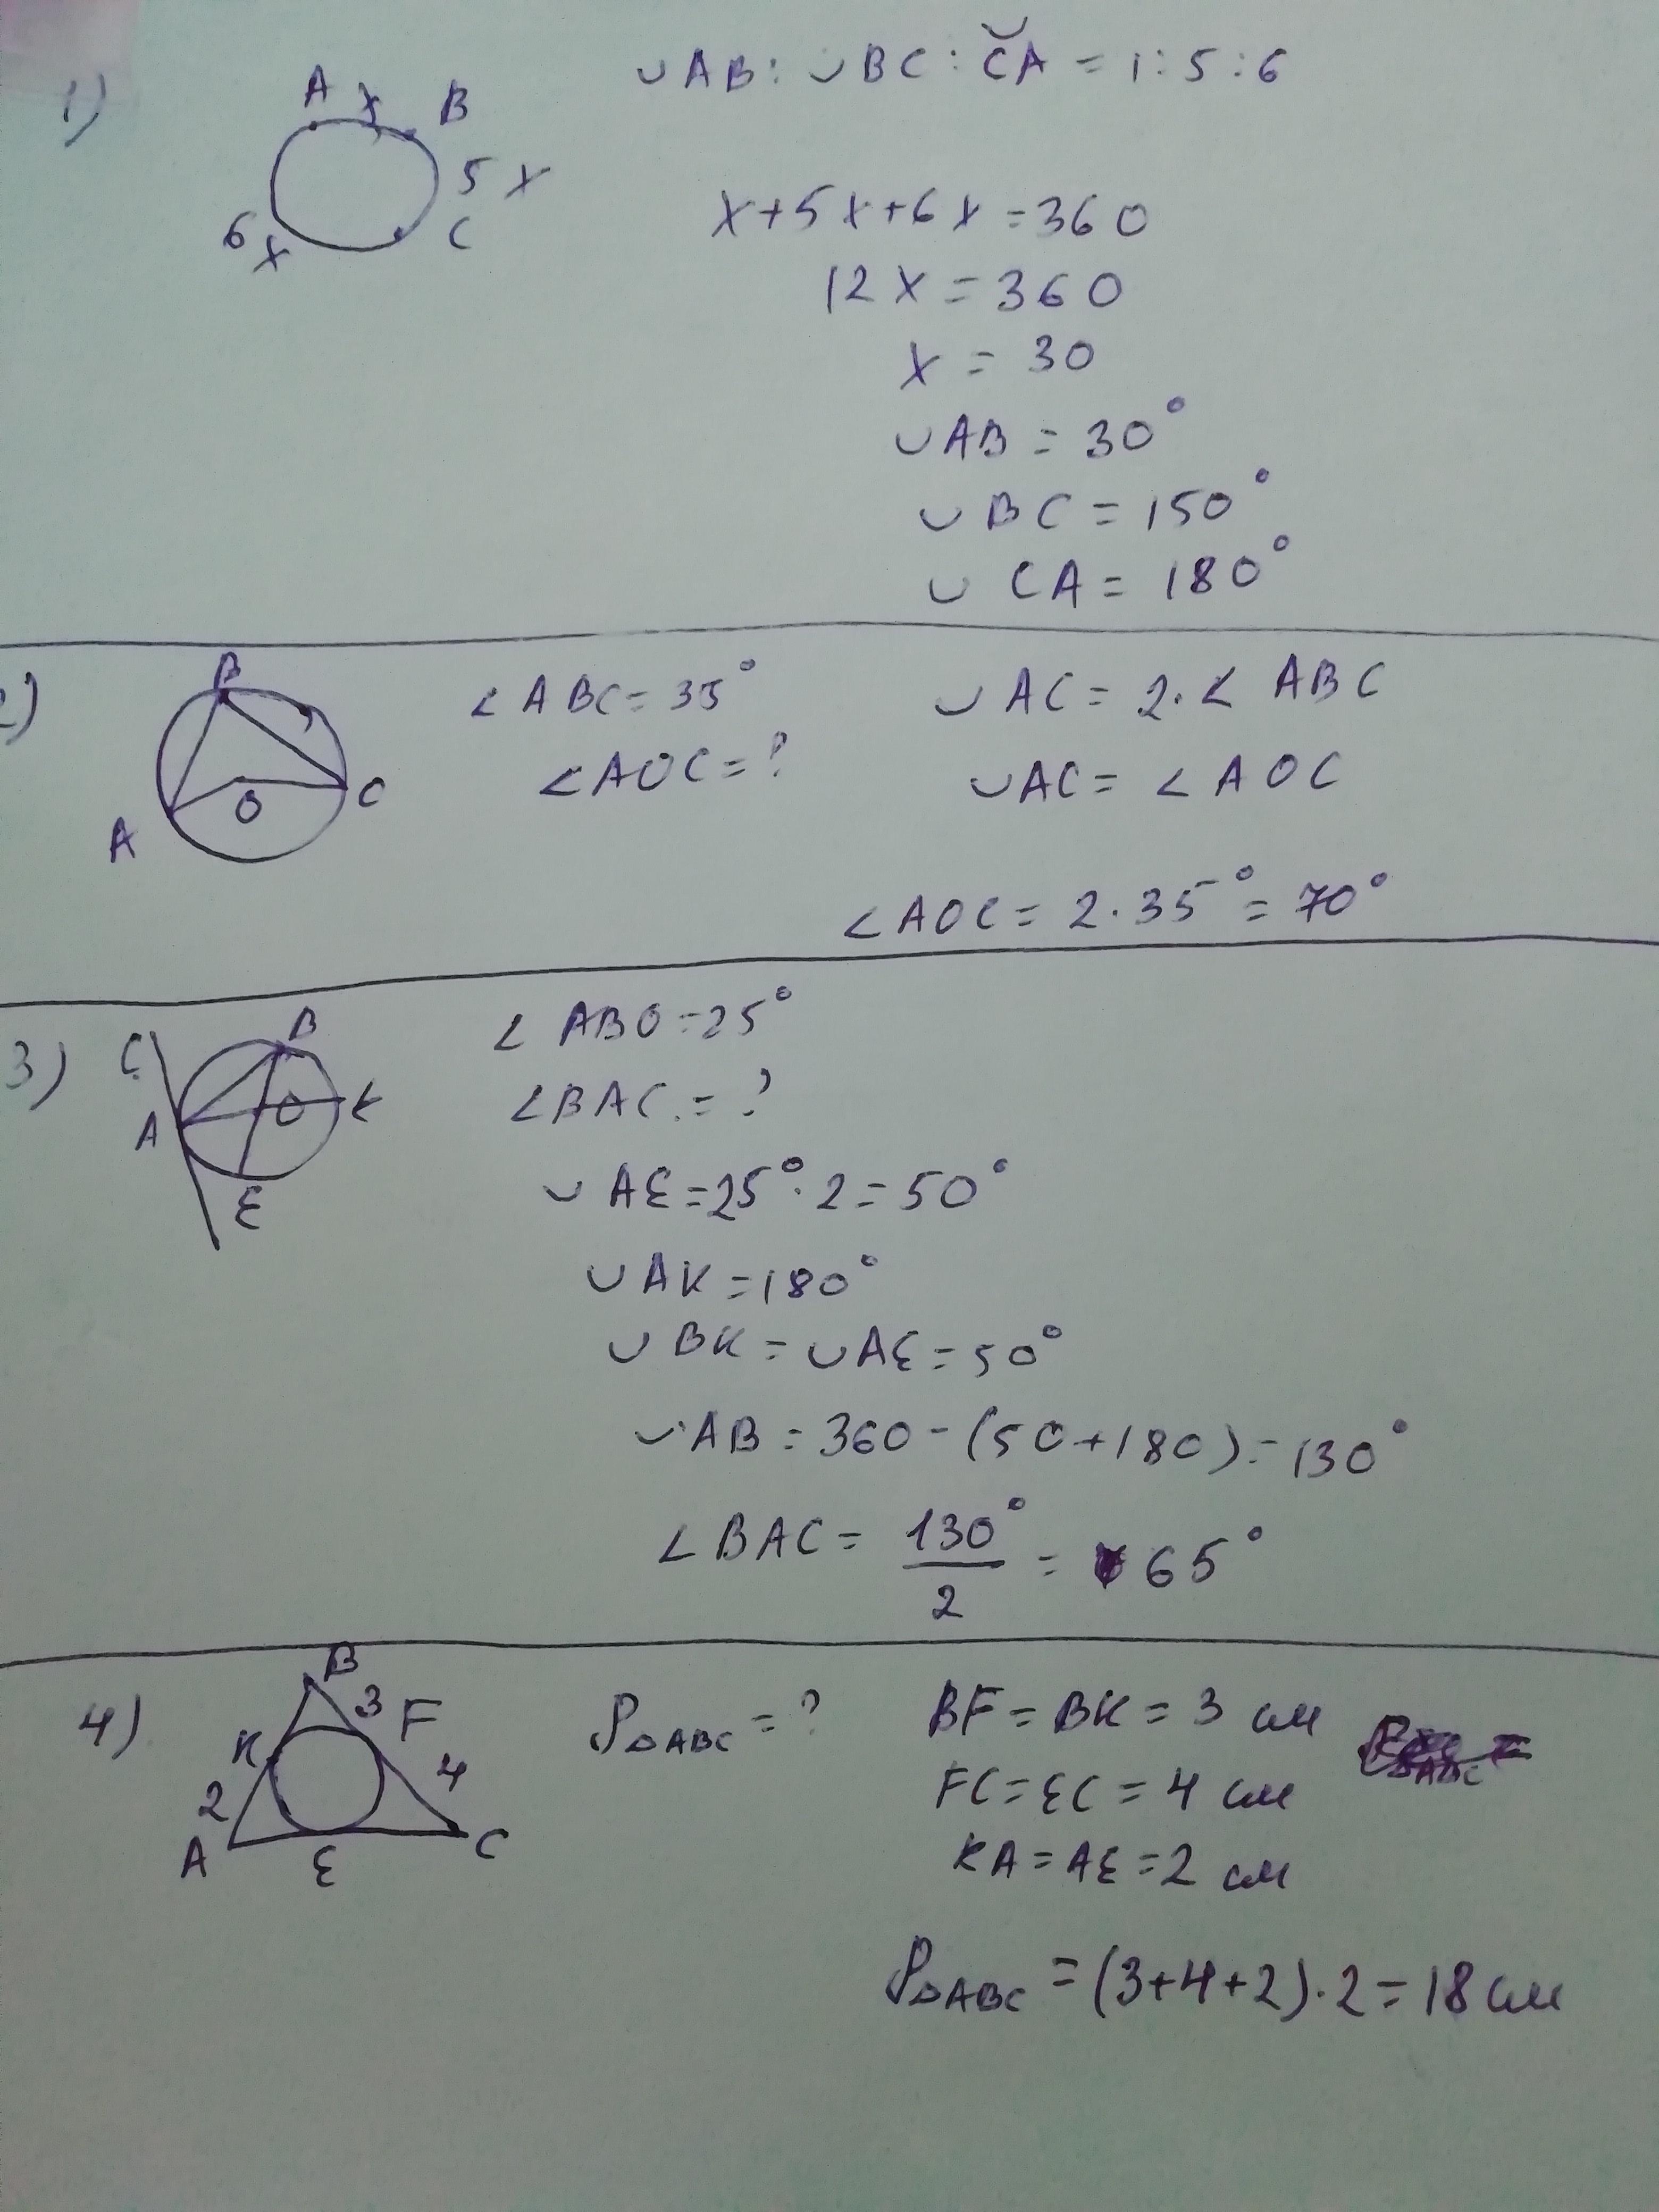 1)
A x B
5x
6x C
∪AB : ∪BC : ∪CA = 1 : 5 : 6
x+5x+6x=360
12x=360
x = 30
∪AB = 30°
∪BC = 150°
∪CA = 180°
2)
B
A O C
∠ABC = 35°
∠AOC = ?
∪AC = 2·∠ABC
∪AC = ∠AOC
∠AOC = 2·35° = 70°
3)
C B
A O K
E
∠ABO = 25°
∠BAC = ?
∪AE = 25°·2 = 50°
∪AK = 180°
∪BK = ∪AE = 50°
∪AB = 360 - (50+180) = 130°
∠BAC = 130°/2 = 65°
4)
B
3 F
K 4
2
A E C
P△ABC = ?
BF = BK = 3 см
FC = EC = 4 см
KA = AE = 2 см
P△ABC = (3+4+2)·2 = 18 см